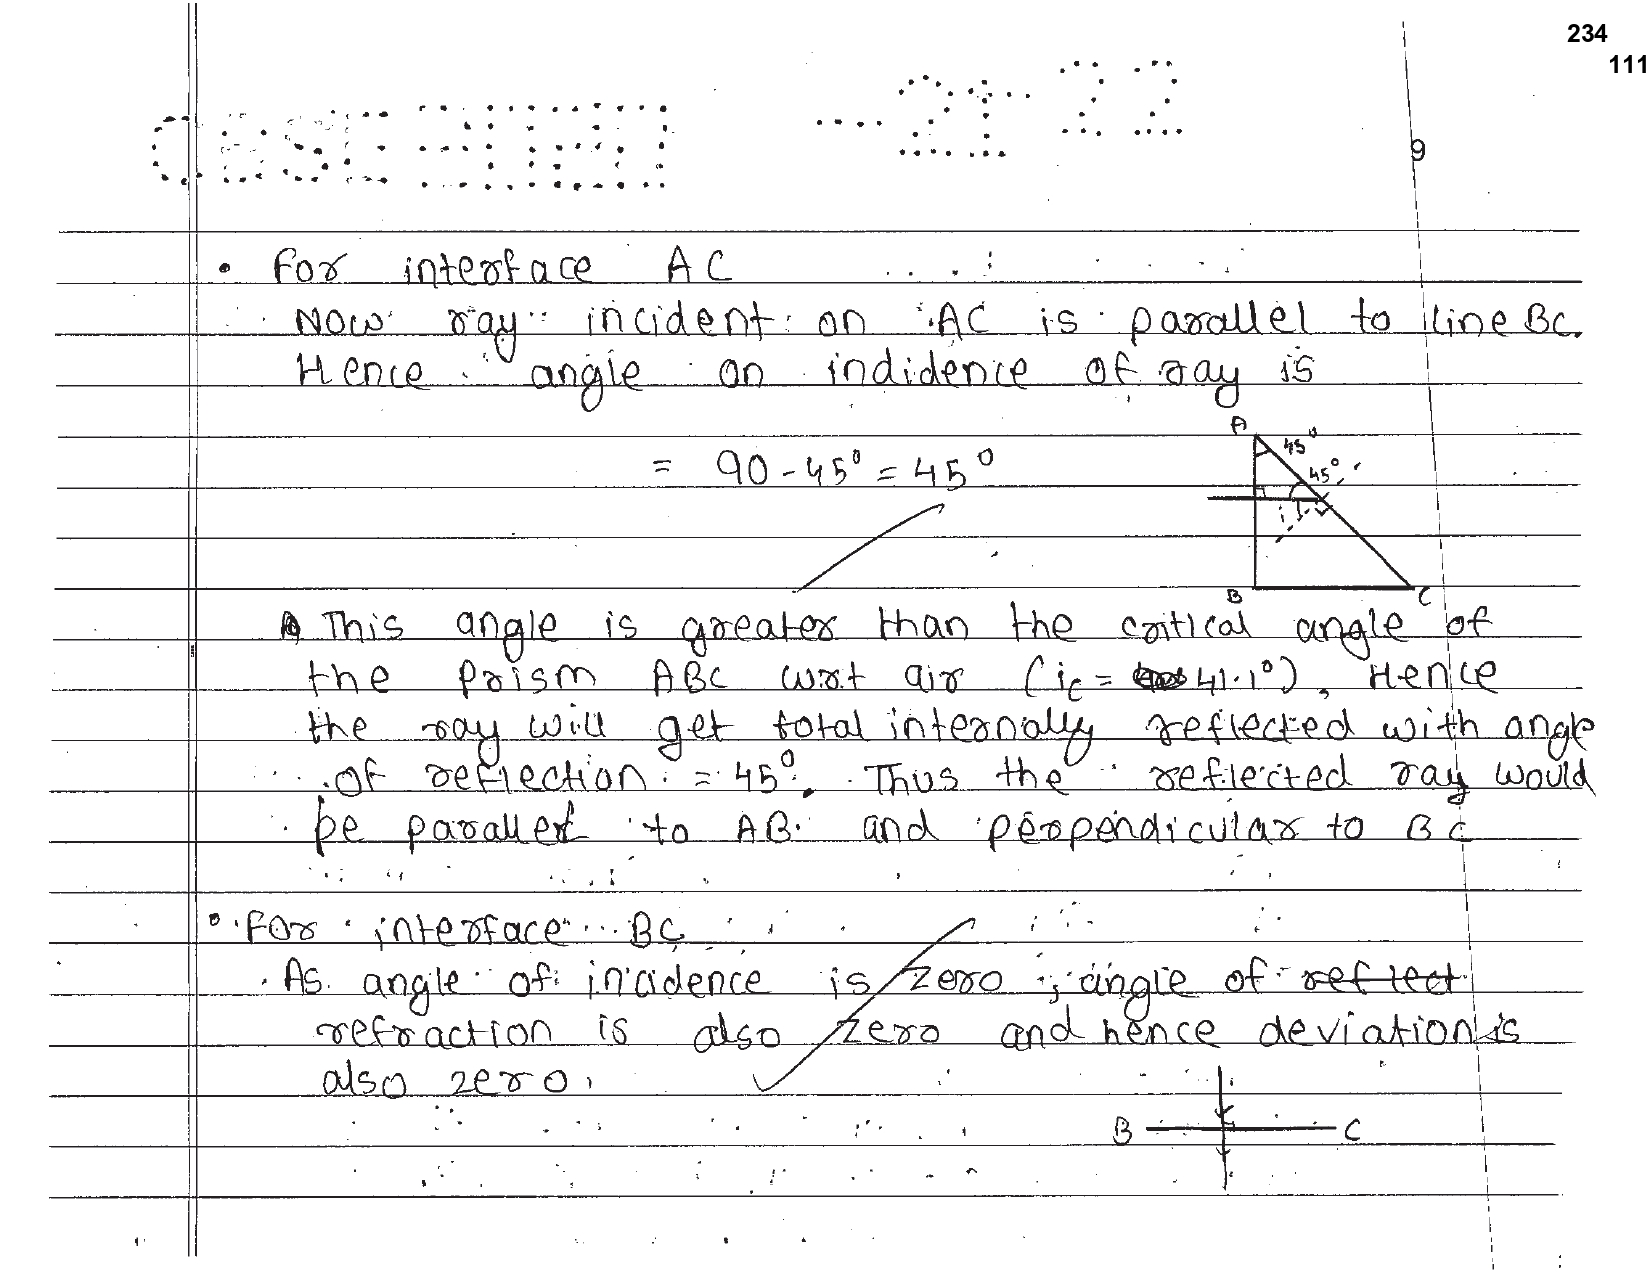 234
111
CBSE
-21-22
9
• For interface AC
Now ray incident on AC is parallel to line BC.
Hence angle on indidence of ray is
= 90 - 45° = 45°
A
45°
45°
i
B
C
This angle is greater than the critical angle of
the prism ABC wrt air (ic = 41.1°), Hence
the ray will get total internally reflected with angle
of reflection = 45°. Thus the reflected ray would
be parallel to AB and perpendicular to BC
• For interface BC
As angle of incidence is zero, angle of reflect
refraction is also zero and hence deviation is
also zero.
B
C